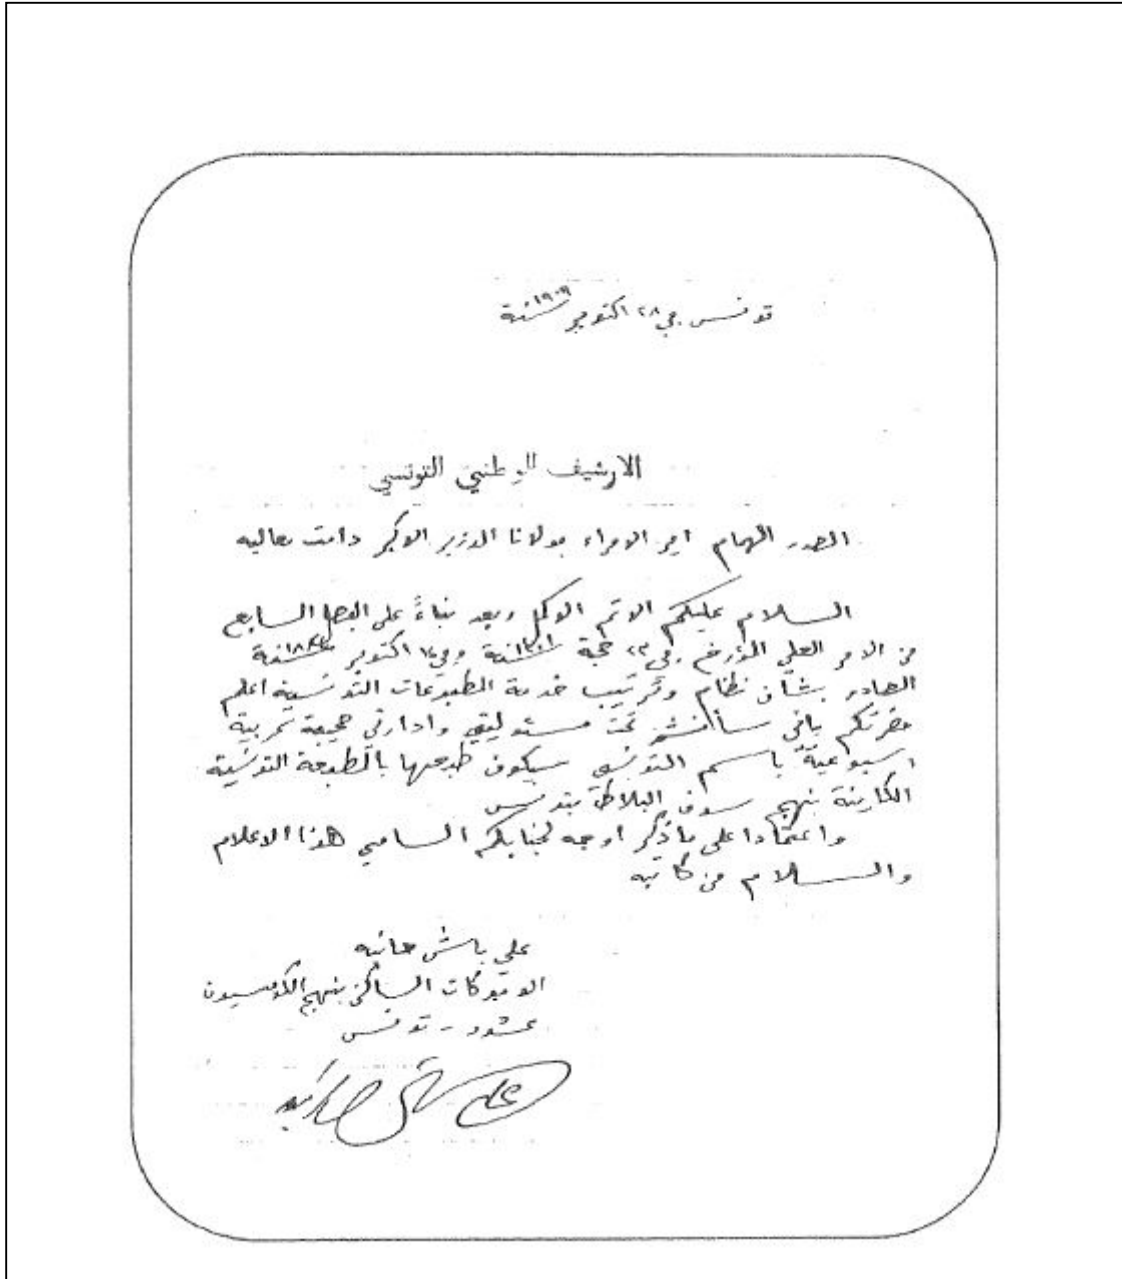 تونس في ٢٨ اكتوبر سنة ١٩٠٩
الارشيف الوطني التونسي
الصدر الهمام امير الامراء مولانا الوزير الاكبر دامت معاليه
السلام عليكم الاتم الاكمل وبعد بناءً على الفصل السابع
من الامر العلي المؤرخ في ٢٣ حجة سنة ١٣٠١ وفي ١٤ اكتوبر سنة
الصادر بشأن نظام وترتيب خدمة المطبوعات التونسية اعلم
حضرتكم باني سأنشر تحت مسئوليتي وادارتي صحيفة عربية
اسبوعية باسم التونسي سيكون طبعها بالمطبعة التونسية
الكاينة بنهج سوق البلاط بتونس
واعتمادا على ما ذكر اوجه لجنابكم السامي هذا الاعلام
والسلام من كاتبه
علي باش حانبه
الاوقوكات الساكن بنهج الكومسيون
تونس
علي باش حانبه